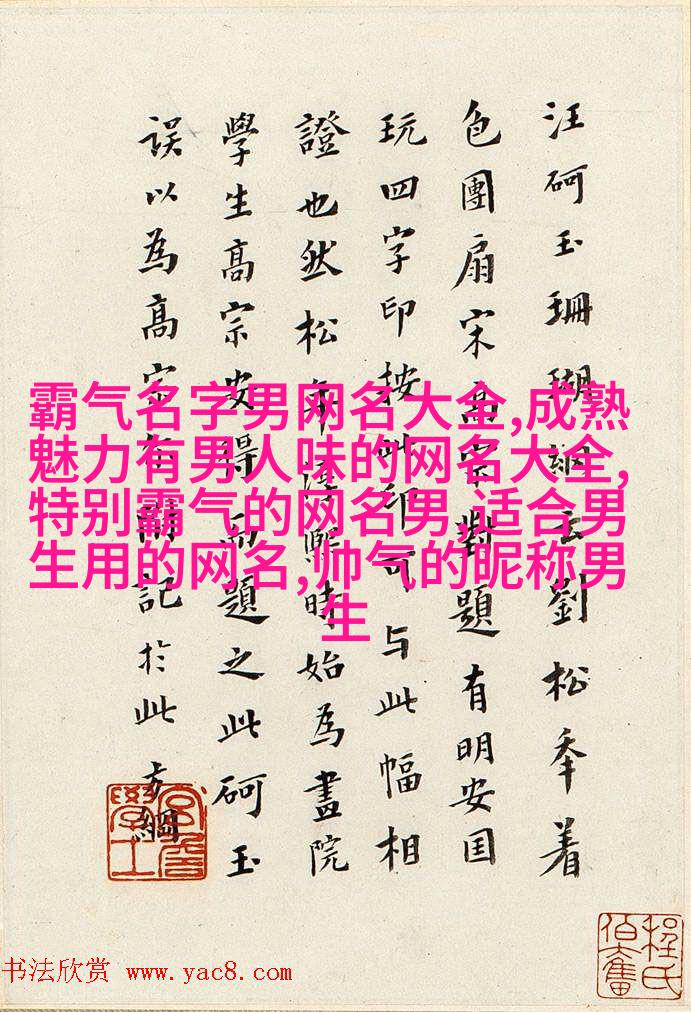 汪砢玉珊瑚網云劉松年着
色團扇宋高宗對題有明安国
玩四字印按此印可与此幅相
證也然松年淳熙時始為畫院
學生高宗安得而題之此砢玉
誤以為高宗 記於此方綱
霸气名字男网名大全,成熟
魅力有男人味的网名大全,
特别霸气的网名男,适合男
生用的网名,帅气的昵称男
生
书法欣赏 www.yac8.com
程氏
伯奮